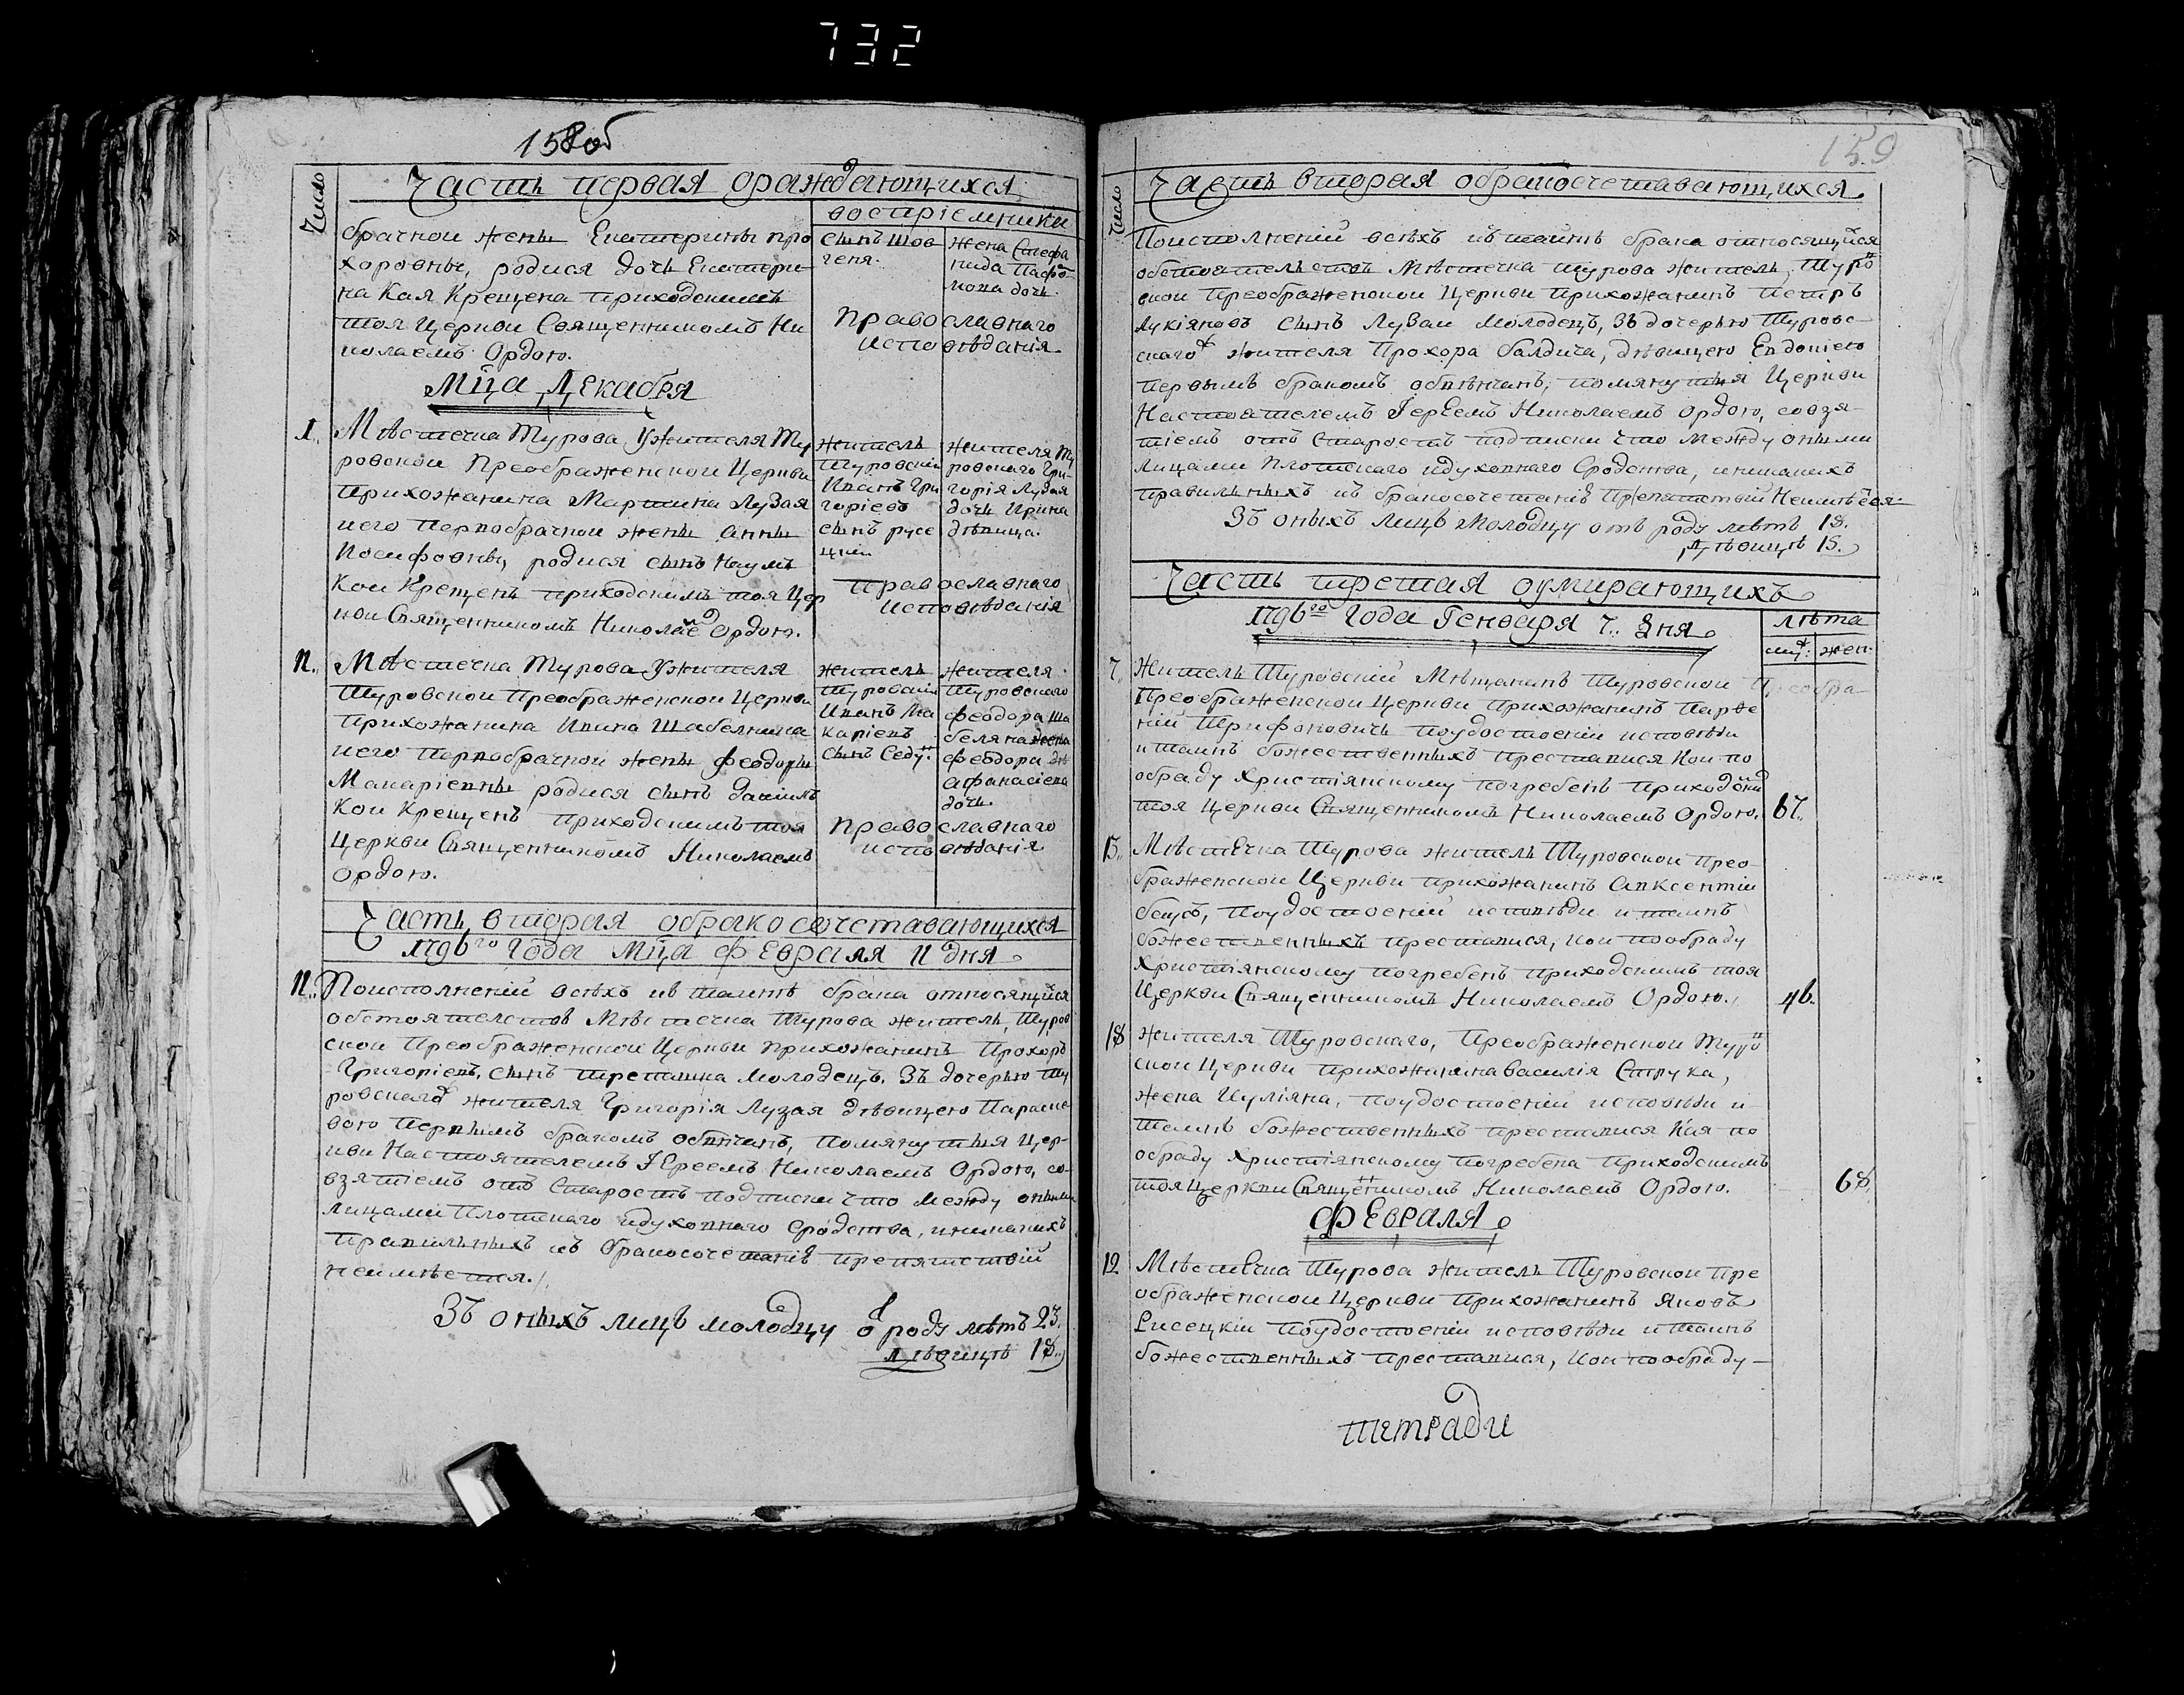 732
158об
Число
Часть первая ораждающихся
воспріемники
брачнои жены Екатерины про
хоровны, родися дочь Екатери
на Кая Крещена приходскимъ
тоя Церкви Священникомъ Ни
колаемъ Ордою.
сынъ Шов
геня.
жена Стефа
нида Пафо
нова дочь.
Православнаго
исповѣданія.
Мц̃а Декабря
1. Мѣстечка Турова Ужителя Ту
ровскои Преображенскои Церкви
Прихожанина Мартина Лузая
иего Первобрачнои жены Анны
Иосифовны, родися сынъ Наумъ
Кои Крещенъ приходскимъ тоя Цер
кви Священникомъ Николаемъ Ордою.
житель
Туровскій
Иванъ Гри
горіевъ
сынъ русе
цкіи
жителя Ту
ровскаго Гри-
горія Лузая
дочь Ирина
дѣвица.
Православнаго
исповѣданія
11. Мѣстечка Турова Ужителя
Туровскои Преображенскои Церкви
Прихожанина Ивана Шабелника
иего Первобрачнои жены Феодоры
Макаріевны родися сынъ Даніилъ
Кои Крещенъ приходскимъ тоя
Церкви Священникомъ Николаемъ
Ордою.
житель
Туровскій
Иванъ Ма
каріевъ
сынъ Седу:
жителя
Туровскаго
Феодора Ша
беляна жена
Феодора
афанасіева
дочь.
Православнаго
исповѣданія
Часть вторая обракосочетавающихся
1796го Года Мц̃а Февраля 11 дня
11. Поисполненіи всѣхъ къ таинѣ брака относящихся
обстоятелствъ Мѣстечка Турова житель, Туров
скои Преображенскои Церкви Прихожанинъ Прохоръ
Григоріевъ, сынъ третьяка молодецъ. Зъ дочерью Ту
ровскаго жителя Григорія Лузая дѣвицею Параске
вою Первымъ бракомъ обвѣнчанъ, Помянутыя Цер-
кви Настоятелемъ Іереемъ Николаемъ Ордою, со-
взятіемъ отъ Старостъ подписки что между оными
лицами Плотскаго идуховнаго Сродства, иникакихъ
Правильныхъ къ бракосочетанію препятствій
неимѣется.
Зъ оныхъ лицъ молодцу от роду лѣтъ 23.
Дѣвицѣ 18.
159
Число
Часть вторая обракосочетавающихся
Поисполненіи всѣхъ къ таинѣ брака относящихся
обстоятельствъ Мѣстечка Турова житель, Туров
скои Преображенскои Церкви Прихожанинъ Петръ
Лукіяновъ сынъ Лузаи Молодецъ, Зъ дочерью Туровс-
скаго жителя Прохора Балдича, дѣвицею Евдокіею
Первымъ бракомъ обвѣнчанъ, помянутыя Церкви
Настоятелемъ Іереемъ Николаемъ Ордою, совзя-
тіемъ отъ Старостъ подписки Что Между оными
лицами Плотскаго идуховнаго Сродства, иникакихъ
правильныхъ къ бракосочетанію Препятствій Неимѣется.
Зъ оныхъ лицъ Молодцу отъ роду лѣтъ 18.
Дѣвицѣ 15.
Часть третая оумирающихъ
1796го Года Генваря 7. Дня
лѣта
муж: жен:
7. Житель Туровскій Мѣщанинъ Туровскои Преобра-
Преображенскои Церкви Прихожанинъ Парѳе
ній Трифоновичъ Поудостоеніи исповѣди
и таинъ божественныхъ преставися Кои по
обряду Христіянскому погребенъ Приходским
тоя Церкви Священникомъ Николаемъ Ордою. 67.
15. Мѣстечка Турова житель Туровскои прео-
браженскои Церкви прихожанинъ Авксентіи
бецъ, Поудостоеніи исповѣди и таинъ
божественныхъ преставися, кои пообряду
Христіянскому погребенъ приходскимъ тоя
Церкви Священникомъ Николаемъ Ордою. 46.
18 Жителя Туровскаго, Преображенскои Туров
скои Церкви прихожанина Василія Струка,
жена Иуліяна, поудостоеніи исповѣди и
таинъ божественныхъ преставися Кая по
обряду Христіянскому погребена Приходскимъ
тоя Церкви Священникомъ Николаемъ Ордою. 68.
Февраля
12 Мѣстечка Турова житель Туровскои Пре
ображенскои Церкви прихожанинъ Яковъ
Рисецкіи Поудостоеніи исповѣди и таинъ
божественныхъ преставися, Кои пообряду-
тетради